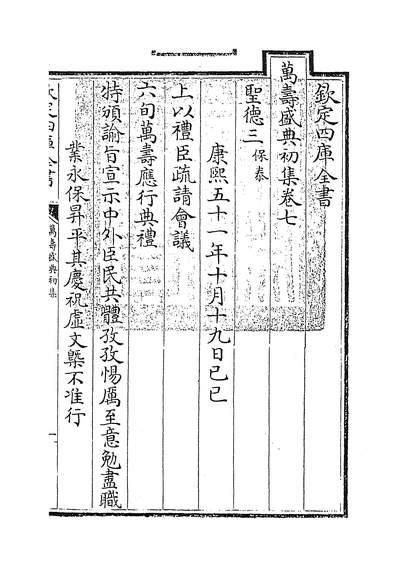 欽定四庫全書
萬壽盛典初集卷七
聖德三 保泰
康熙五十一年十月十九日己巳
上以禮臣疏請會議
六旬萬壽應行典禮
特頒諭旨宣示中外臣民共體孜孜惕厲至意勉盡職
業永保昇平其慶祝虛文槩不准行
欽定四庫全書
萬壽盛典初集
一